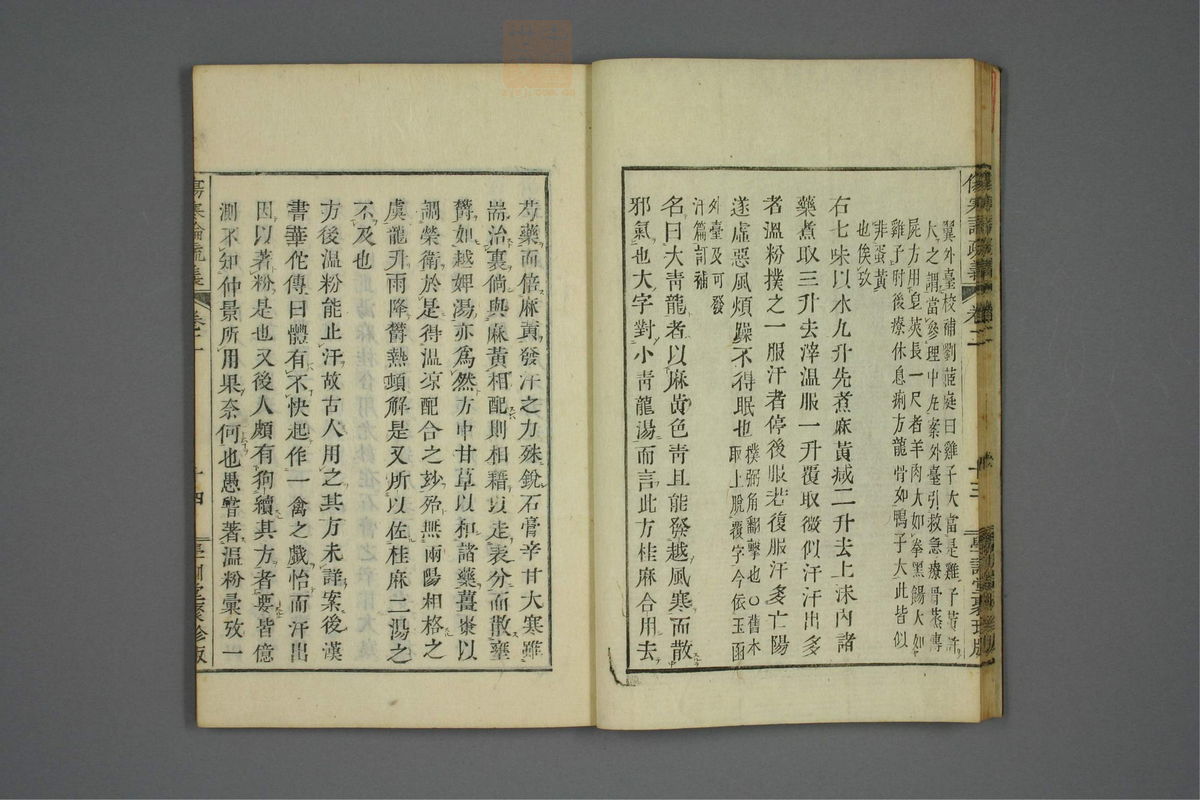 翼外臺校補劉茝庭曰雞子大當是雞子黃許
大之謂當參理中丸案外臺引救急療骨蒸傳
屍方用皂莢長一尺者羊肉大如拳黑餳大如
雞子肘後療休息痢方龍骨如鴨子大此皆似
非蛋黃
也俟攷
右七味以水九升先煮麻黃減二升去上沫內諸
藥煮取三升去滓溫服一升覆取微似汗汗出多
者溫粉撲之一服汗者停後服若復服汗多亡陽
遂虛惡風煩躁不得眠也撲弼角翻擊也○舊本
取上脫覆字今依玉函
外臺及可發
汗篇訂補
名曰大青龍者以麻黃色青且能發越風寒而散
邪氣也大字對小青龍湯而言此方桂麻合用去
傷寒論疏義 卷二
十三 學訓堂聚珍版
芍藥而倍麻黃發汗之力殊銳石膏辛甘大寒雖
耑治裏倘與麻黃相配則相藉以走表分而散壅
欝如越婢湯亦爲然方中甘草以和諸藥薑棗以
調榮衛於是得溫凉配合之玅殆無兩陽相格之
虞龍升雨降欝熱頓解是又所以佐桂麻二湯之
不及也
方後溫粉能止汗故古人用之其方未詳案後漢
書華佗傳曰體有不快起作一禽之戲怡而汗出
因以著粉是也又後人頗有狗續其方者要皆億
測不知仲景所用果奈何也愚嘗著溫粉彙攷一
傷寒論疏義 卷二
十四 學訓堂聚珍版